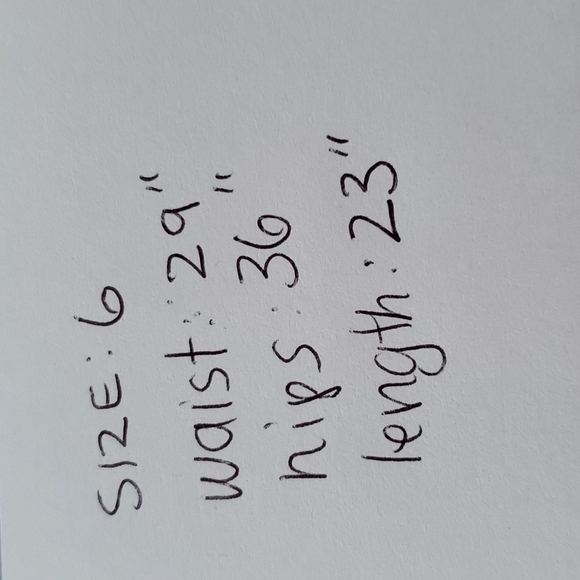 SIZE: 6
waist: 29"
hips: 36"
length: 23"